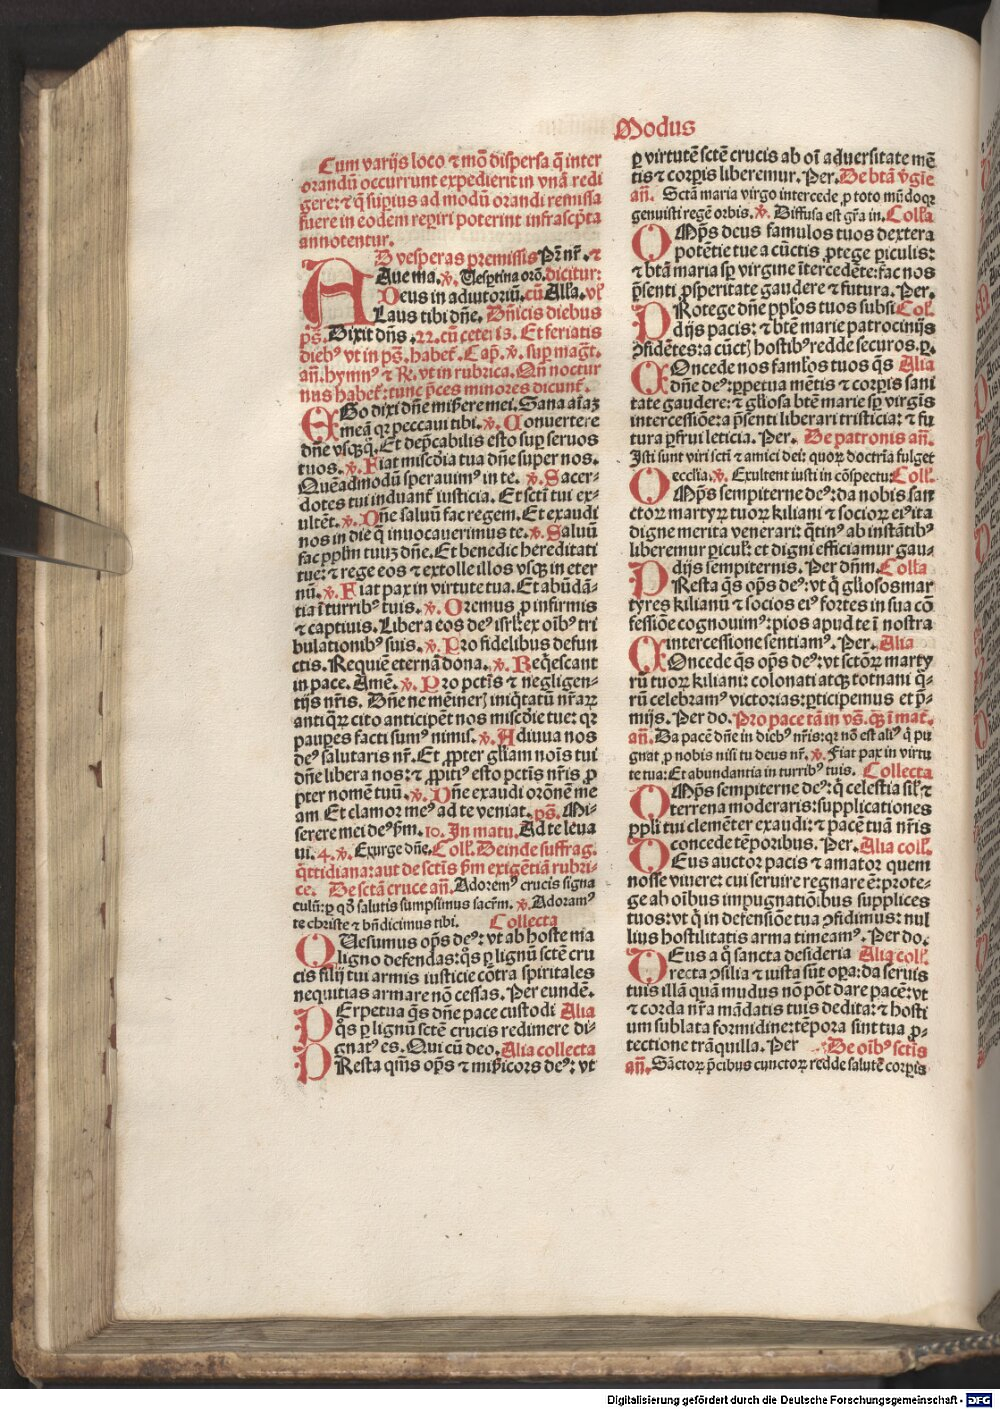 Modus
Cum varijs loco ⁊ mõ dispersa q̃ inter
orandũ occurrunt expedierit in vnã redi
gere: ⁊ q̃ supius ad modũ orandi remissa
fuere in eodem reperiri poterint infrascp̃ta
annotentur.
AD vesperas premissis Pr̃ nr̃. ⁊
Aue ma. ℣. Uesp̃tina orõ. dicitur:
Deus in adiutoriũ. cũ Alla. vl'
Laus tibi dñe. Dñicis diebus
ps̃. Dixit dñs. 22. cũ ceteris. Et feriatis
diebꝰ vt in ps̃. habet̃. Cap̃. ℣. sup mag̃t.
añ. hymnꝰ ⁊ ℟. vt in rubrica. Qñ noctur
nus habet̃: tunc p̃ces minores dicunt̃.
EGo dixi dñe miserere mei. Sana aĩaꝫ
meã qꝛ peccaui tibi. ℣. Conuertere
dñe vsq̃q̃. Et dep̃cabilis esto sup seruos
tuos. ℣. Fiat miscd̃ia tua dñe super nos.
Quẽadmodũ sperauimꝰ in te. ℣. Sacer-
dotes tui induant̃ iusticia. Et sctĩ tui ex-
ultẽt. ℣. Dñe saluũ fac regem. Et exaudi
nos in die q̃ inuocauerimus te. ℣. Saluũ
fac pplm̃ tuuꝫ dñe. Et benedic hereditati
tue: ⁊ rege eos ⁊ extolle illos vsqꝫ in eter
nũ. ℣. Fiat pax in virtute tua. Et abũdã-
tia ĩ turribꝰ tuis. ℣. Oremus ꝓ infirmis
⁊ captiuis. Libera eos deꝰ isrl': ex oĩbꝰ tri
bulationibꝰ suis. ℣. Pro fidelibus defun
ctis. Requiẽ eternã dona. ℣. Req̃escant
in pace. Amẽ. ℣. Pro pctĩs ⁊ negligen-
tijs nr̃is. Dñe ne mẽineris iniq̃tatũ nr̃aꝝ
antiq̃ꝝ cito anticipẽt nos miscd̃ie tue: qꝛ
paupes facti sumꝰ nimis. ℣. Adiuua nos
deꝰ salutaris nr̃. Et ꝓpter gl'iam nois tui
dñe libera nos: ⁊ ꝓpitiꝰ esto pctĩs nr̃is ꝓ
pter nomẽ tuũ. ℣. Dñe exaudi orõnẽ me
am Et clamor meꝰ ad te veniat. ps̃. Mi-
serere mei deꝰ p̃m. 10. In matu. Ad te leua
ui. 4. ℣. Exurge dñe. Coll'. Deinde suffrag.
q̃ttidiana: aut de sctĩs p̃m exigẽtiã rubri-
ce. De sctã cruce añ. Adoremꝰ crucis signa
culũ: ꝑ qd̃ salutis sumpsimus sacr̃m. ℣. Adoramꝰ
te christe ⁊ bñdicimus tibi. Collecta
QUesumus op̃s deꝰ: vt ab hoste ma
ligno defendas: q̃s ꝑ lignũ sctẽ cru
cis filij tui armis iusticie cõtra spiritales
nequitias armare nõ cessas. Per eundẽ.
PErpetua q̃s dñe pace custodi Alia
q̃s ꝑ lignũ sctẽ crucis redimere di-
gnatꝰ es. Qui cũ deo. Alia collecta
PResta q̃m̃s op̃s ⁊ mis̃icors deꝰ: vt
ꝑ virtutẽ sctẽ crucis ab oĩ aduersitate mẽ
tis ⁊ corpis liberemur. Per. De btã vg̃ie
añ. Sctã maria virgo intercede ꝓ toto mũdo qꝛ
genuisti regẽ orbis. ℣. Diffusa est gr̃a in. Coll'a
OMp̃s deus famulos tuos dextera
potẽtie tue a cũctis ꝓtege piculis:
⁊ btã maria sp virgine ĩtercedẽte: fac nos
p̃senti ꝓsperitate gaudere ⁊ futura. Per.
PRotege dñe pplos tuos subsi Col'.
dijs pacis: ⁊ btẽ marie patrocinijs
ꝯfidẽtes: a cũctis hostibꝰ redde securos. ꝑ.
COncede nos famlos tuos q̃s Alia
dñe deꝰ: ppetua mẽtis ⁊ corpis sani
tate gaudere: ⁊ gl'iosa btẽ marie sp virgĩs
intercessiõe: a p̃senti liberari tristicia: ⁊ fu
tura pfrui leticia. Per. De patronis añ.
Isti sunt viri sctĩ ⁊ amici dei: quoꝝ doctrĩa fulget
eccl'ia. ℣. Exultent iusti in cõspectu: Coll'.
OMp̃s sempiterne deꝰ: da nobis san
ctoꝝ martyꝝ tuoꝝ kiliani ⁊ socioꝝ eiꝰ ita
digne merita venerari: q̃tinꝰ ab instãtibꝰ
liberemur picul': et digni efficiamur gau-
dijs sempiternis. Per dñm. Coll'a
PResta q̃s op̃s deꝰ: vt q̃ gl'iosos mar
tyres kilianũ ⁊ socios eiꝰ fortes in sua cõ
fessiõe cognouimꝰ: pios apud te ĩ nostra
intercessione sentiamꝰ. Per. Alia
COncede q̃s op̃s deꝰ: vt sctõꝝ marty
rũ tuoꝝ kiliani: colonati atqꝫ totnani q̃-
rũ celebramꝰ victorias: pticipemus et p̃-
mijs. Per do. Pro pace tã in vs̃. qꝫ ĩ mat̃.
añ. Da pacẽ dñe in diebꝰ nr̃is: qꝛ nõ est aliꝰ q̃ pu
gnat ꝓ nobis nisi tu deus nr̃. ℣. Fiat pax in virtu
te tua: Et abundantia in turribꝰ tuis. Collecta
OMp̃s sempiterne deꝰ: q̃ celestia sil' ⁊
terrena moderaris: supplicationes
ppli tui clemẽter exaudi: ⁊ pacẽ tuã nr̃is
concede tẽporibus. Per. Alia coll'.
DEus auctor pacis ⁊ amator quem
nosse viuere: cui seruire regnare ẽ: prote-
ge ab oĩbus impugnatiõibus supplices
tuos: vt q̃ in defensiõe tua ꝯfidimus: nul
lius hostilitatis arma timeamꝰ. Per do.
DEus a q̃ sancta desideria Alia coll'.
recta ꝯsilia ⁊ iusta sũt opa: da seruis
tuis illã quã mudus nõ põt dare pacẽ: vt
⁊ corda nr̃a mãdatis tuis dedita: ⁊ hosti
um sublata formidine: tẽpora sint tua ꝓ-
tectione trãquilla. Per De oĩbꝰ sctĩs
añ. Sãctoꝝ p̃cibus cunctoꝝ redde salutẽ corpis
Digitalisierung gefördert durch die Deutsche Forschungsgemeinschaft - DFG